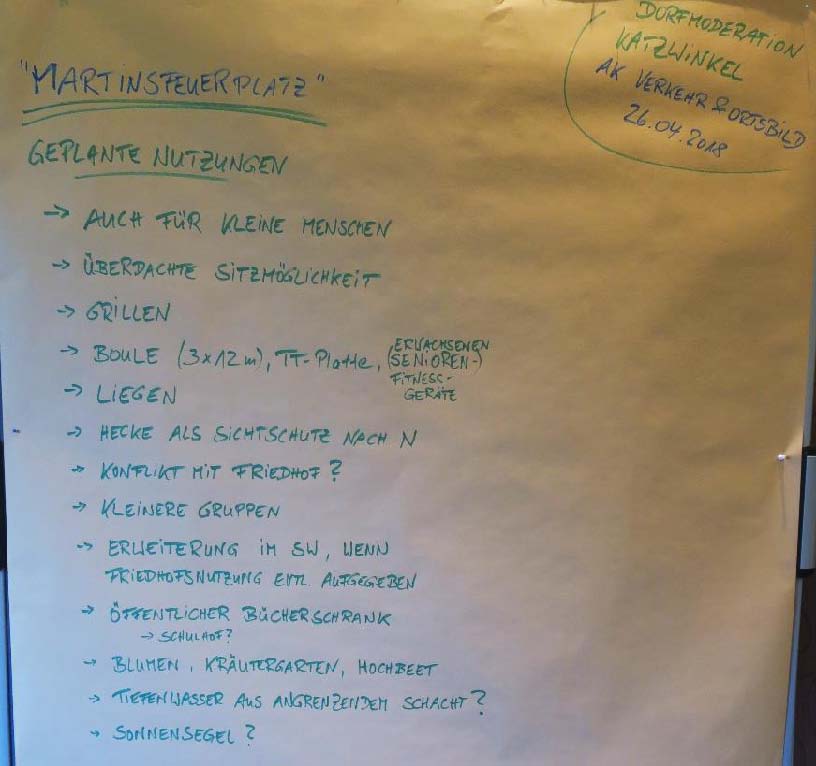 DORFMODERATION
KATZWINKEL
AK VERKEHR & ORTSBILD
26.04.2018
"MARTINSFEUERPLATZ"
GEPLANTE NUTZUNGEN
→ AUCH FÜR KLEINE MENSCHEN
→ ÜBERDACHTE SITZMÖGLICHKEIT
→ GRILLEN
→ BOULE (3x12m), TT-Platte, (ERWACHSENEN
SENIOREN-)
FITNESS-
GERÄTE
→ LIEGEN
→ HECKE ALS SICHTSCHUTZ NACH N
→ KONFLIKT MIT FRIEDHOF?
→ KLEINERE GRUPPEN
→ ERWEITERUNG IM SW, WENN
FRIEDHOFSNUTZUNG EVTL AUFGEGEBEN
→ ÖFFENTLICHER BÜCHERSCHRANK
→ SCHULHOF?
→ BLUMEN, KRÄUTERGARTEN, HOCHBEET
→ TIEFENWASSER AUS ANGRENZENDEM SCHACHT?
→ SONNENSEGEL?